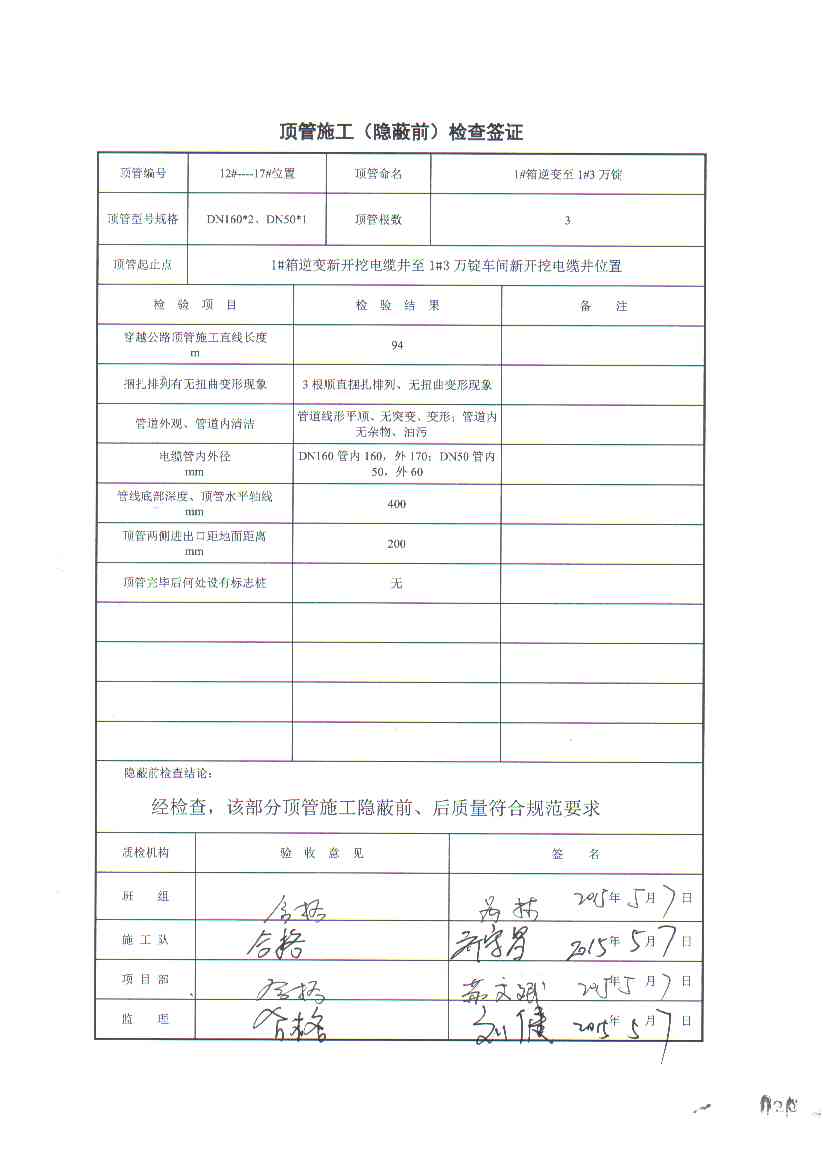 顶管施工（隐蔽前）检查签证
顶管编号 12#----17#位置 顶管命名 1#箱逆变至 1#3 万锭
顶管型号规格 DN160*2、DN50*1 顶管根数 3
顶管起止点 1#箱逆变新开挖电缆井至 1#3 万锭车间新开挖电缆井位置
检 验 项 目 检 验 结 果 备 注
穿越公路顶管施工直线长度
m
94
捆扎排列有无扭曲变形现象 3 根顺直捆扎排列、无扭曲变形现象
管道外观、管道内清洁
管道线形平顺、无突变、变形；管道内
无杂物、油污
电缆管内外径
mm
DN160 管内 160，外 170；DN50 管内
50，外 60
管线底部深度、顶管水平轴线
mm
400
顶管两侧进出口距地面距离
mm
200
顶管完毕后何处设有标志桩 无
隐蔽前检查结论：
经检查，该部分顶管施工隐蔽前、后质量符合规范要求
质检机构 验 收 意 见 签 名
班 组 合格 2015年 5月 7日
施 工 队 合格 2015年 5月 7日
项 目 部 合格 2015年 5月 7日
监 理 合格 刘健 2015年 5月 7日